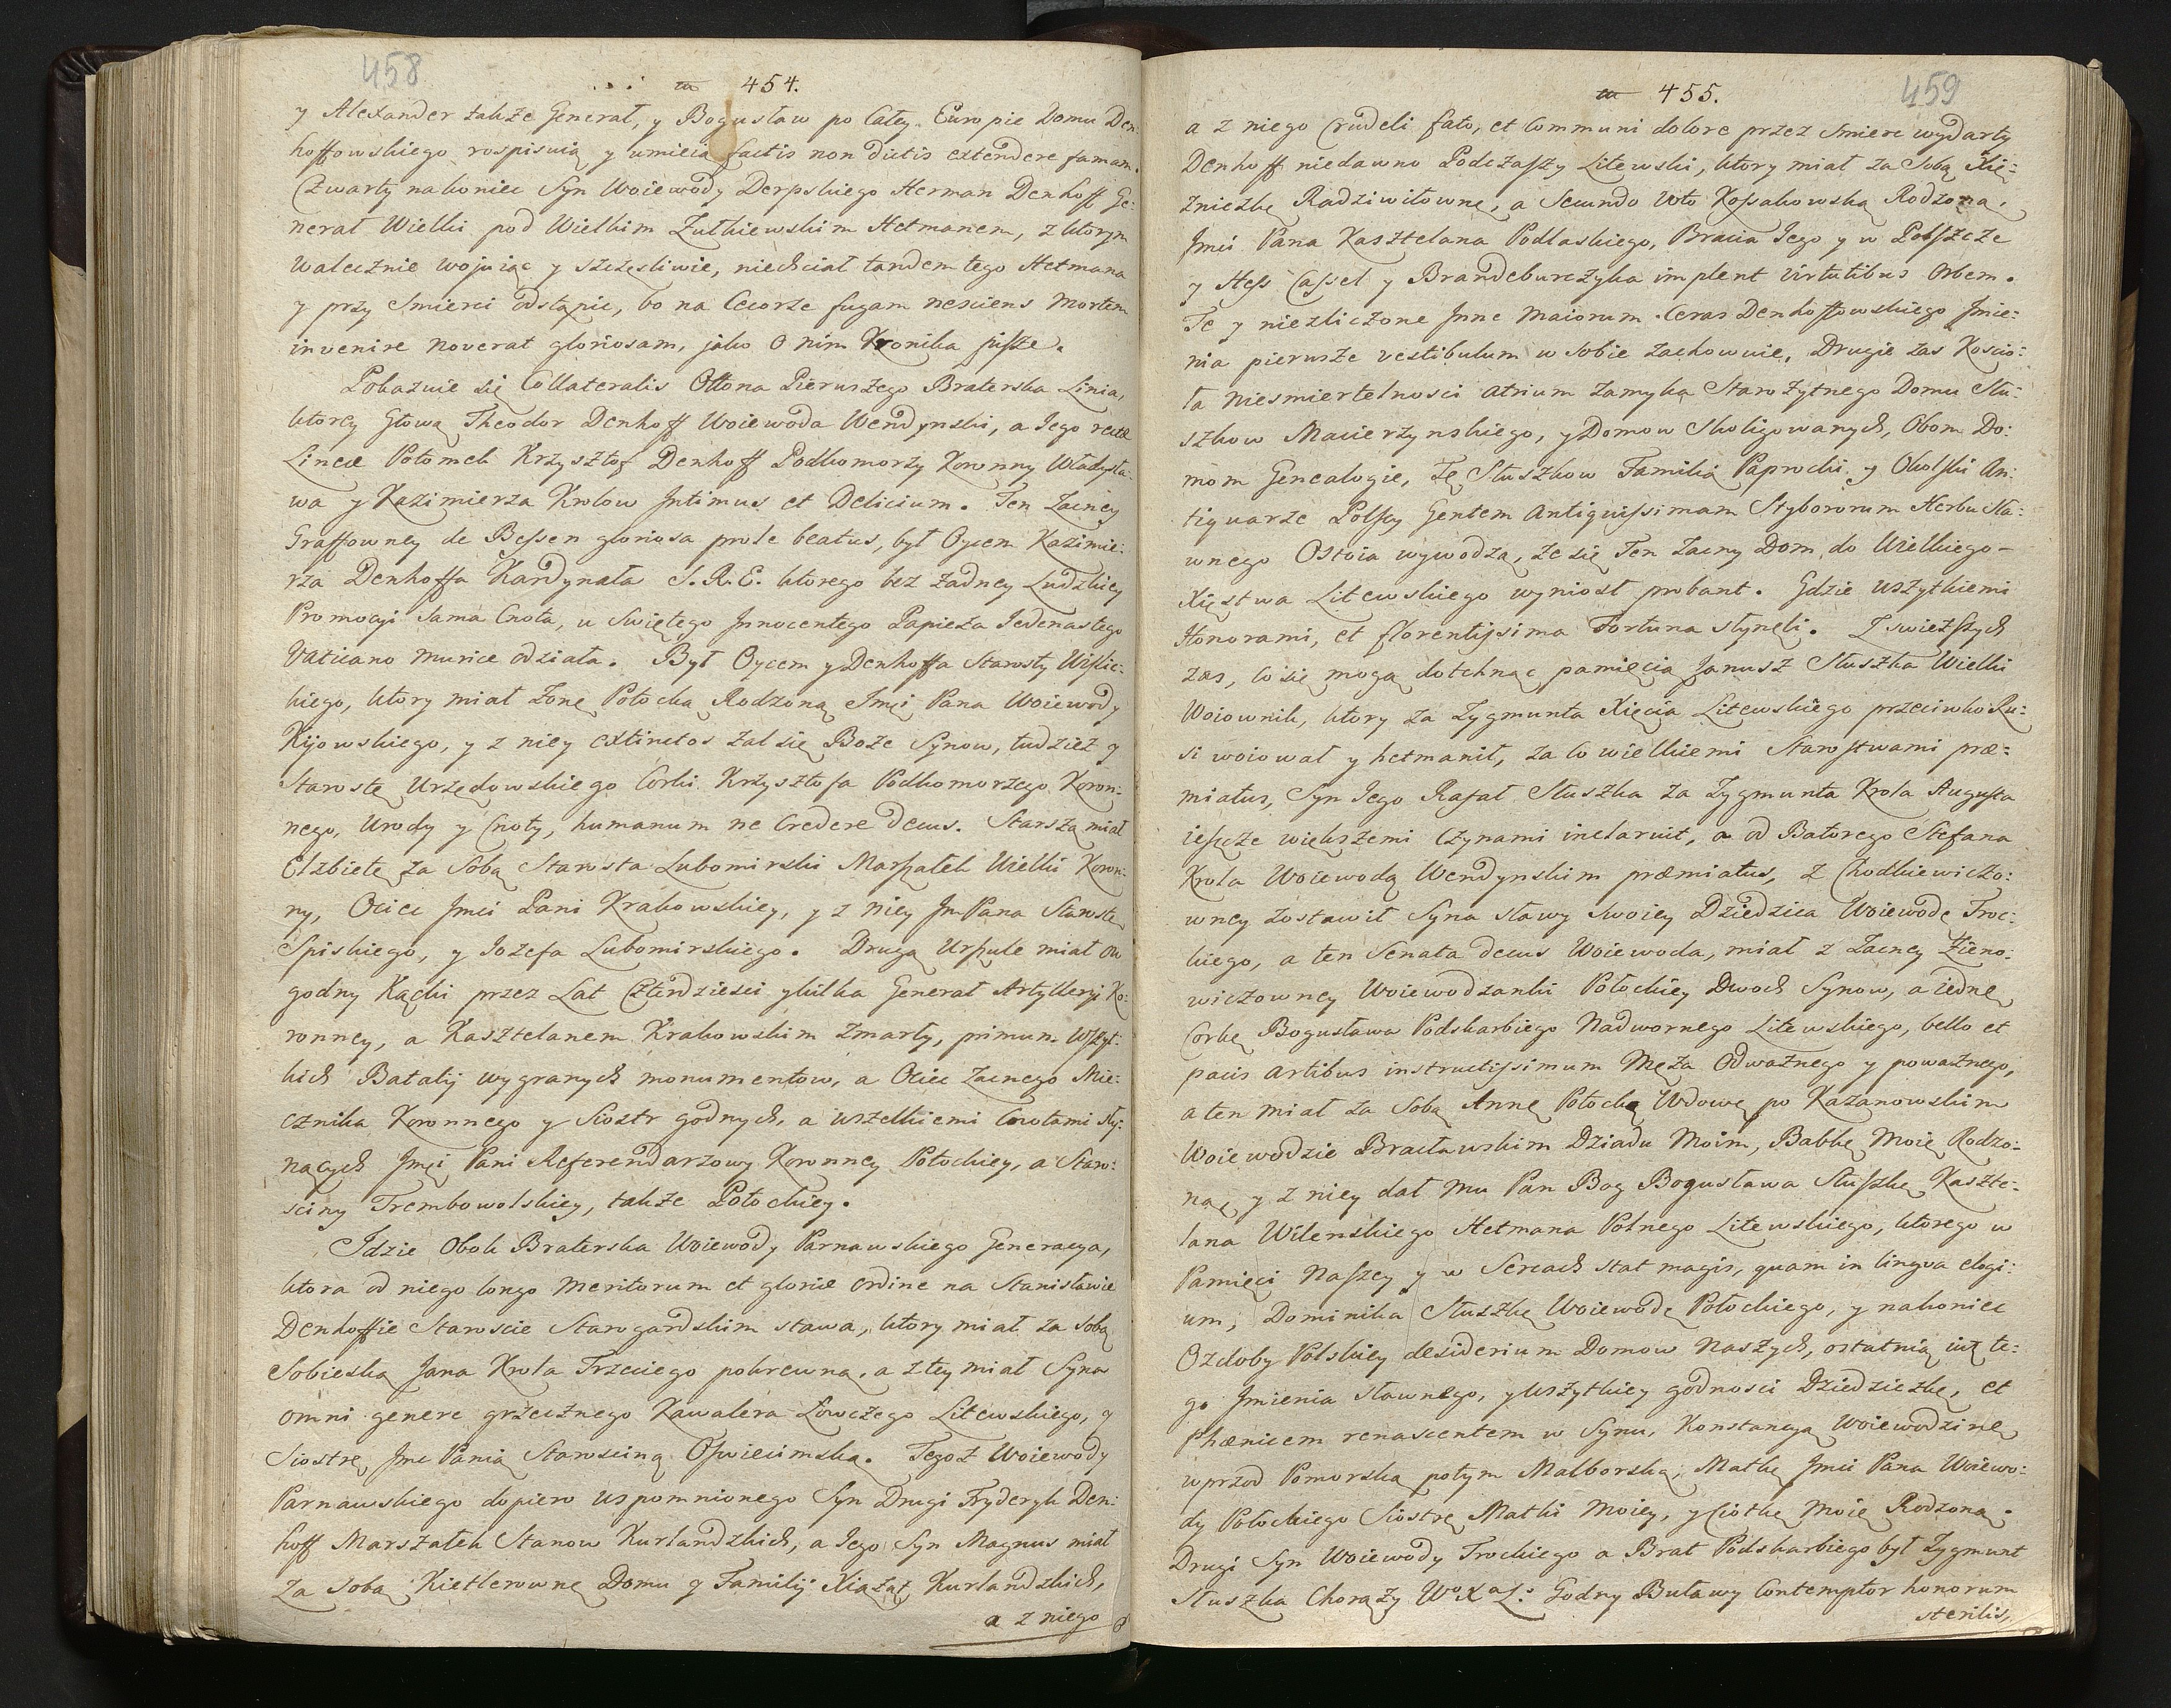 458
454.
y Alexander także Generał, y Bogusław po Całey Europie Domu Den:
hoffowskiego rospisuią y umieią factis non dictis extendere famam.
Czwarty nakoniec Syn Woiewody Derpskiego Herman Denhoff Ge:
nerał Wielki pod Wielkim Żułkiewskim Hetmanem, z ktorym
walecznie wojuiąc y szczęsliwie, niechciał tandem tego Hetmana
y przy Smierci odstąpic, bo na Cecorze fugam nesciens mortem
invenire noverat gloriosam, jako o nim Kronika pisze.
Pokazuie się Collateralis Ottona Pierwszego Braterska Linia,
ktorey Głową Theodor Denhoff Woiewoda Wendynski, a Jego rectæ
Lineæ Potomek Krzysztof Denhoff Podkomorzy Koronny Władysła:
wa y Kazimierza Krolow Intimus et Delicium. Ten Zacney
Graffowney de Bessen gloriosa prole beatus, był Oycem Kazimie:
rza Denhoffa Kardynała S. R. E. ktorego bez żadney Ludzkiey
Promocyi Sama Cnota, u Swiętego Innocentego Papieża Jedenastego
Vaticano murice odziała. Był Oycem y Denhoffa Starosty Wislic:
kiego, ktory miał żonę Potocką Rodzoną Jmci Pana Woiewody
Kijowskiego, y z niey extinctos żal się Boże Synow, tudzież y
Starostę Urzędowskiego Corki Krzysztofa Podkomorzego Koron:
nego, Urody y Cnoty, humanum ne credere decus. Starszą miał
Elzbietę za Sobą Starosta Lubomirski Marszałek Wielki Koron:
ny, Ociec Jmci Pani Krakowskiey, y z niey Jm Pana Starostę
Spiskiego, y Jozefa Lubomirskiego. Drugą Urszulę miał ow
godny Kącki przez Lat Czterdziesci y kilka Generał Artylleryi Ko:
ronney, a Kasztelanem Krakowskim zmarły, primum wszyt:
kich Batalij wygranych monumentow, a Ociec Zacnego Mie:
cznika Koronnego y Siostr godnych, a wszelkiemi Cnotami sły:
nących Jmci Pani Referendarzowy Koronney Potockiey, a Staro:
sciny Trembowolskiey, także Potockiey.
Idzie Obok Braterska Woiewody Parnawskiego Generacya,
ktora od niego longo meritorum et gloriæ ordine na Stanisławie
Denhoffie Staroscie Starogardskim stawa, ktory miał za sobą
Sobieską Jana Krola Trzeciego pokrewną, a z tey miał Syna
omni genere grzecznego Kawalera Łowczego Litewskiego, y
Siostrę, Jmc Panią Starosciną Oswiecimską. Tegoż Woiewody
Parnawskiego dopiero wspomnionego Syn Drugi Fryderyk Den:
hoff Marszałek Stanow Kurlandzkich, a Jego Syn Magnus miał
za sobą Kietlerownę Domu y Familij Xiążąt Kurlandzkich,
a z niego
459
455.
a z niego crudeli fato, et communi dolore przez Smierc wydarty
Denhoff niedawno Podczaszy Litewski, ktory miał za Sobą Xię:
żniczkę Radziwiłownę, a Secundo voto Kossakowską Rodzoną,
Jmci Pana Kasztelana Podlaskiego, Bracia Jego y w Polszcze
y Hess Cassel y Brandeburczyka implent virtutibus Orbem.
Te y niezliczone Inne Maiorum Ceras Denhoffowskiego Imie:
nia pierwsze vestibulum w sobie zachowuie, Drugie zas Koscio:
ła Niesmiertelnosci atrium zamyka Starożytnego Domu Słu:
szkow Macierzynskiego, y Domow Skoligowanych, Obom Do:
mom Genealogie, Tę Słuszkow Familią Paprocki y Okolski An:
tiquarze Polscy Gentem Antiquissimam Stybororum Herbu Sła:
wnego Ostoia wywodzą, że się Ten Zacny Dom do Wielkiego
Xięstwa Litewskiego wyniosł probant. Gdzie wszytkiemi
Honorami, et florentissima Fortuna słyneli. Z swieższych
zas, co się mogą dotchnąc pamięcią Janusz Słuszka Wielki
Woiownik, ktory za Zygmunta Xięcia Litewskiego przeciwko Ru:
si woiował y hetmanił, za co wielkiemi Starostwami præ:
miatus, Syn Jego Rafał Słuszka za Zygmunta Krola Augusta
ieszcze większemi Czynami inclaruit, a od Batorego Stefana
Krola Woiewodą Wendynskim præmiatus, z Chodkiewiczo:
wney zostawił Syna sławy swoiey Dziedzica Woiewodę Troc:
kiego, a ten Senatu decus Woiewoda, miał z Zacney Zieno:
wiczowney Woiewodzanki Połockiey Dwoch Synow, a iednę
Corkę Bogusława Podskarbiego Nadwornego Litewskiego, bello et
pacis artibus instructissimum Męża Odważnego y poważnego,
a ten miał za Sobą Annę Potocką Wdowę po Kazanowskim
Woiewodzie Bracławskim Dziadu Moim, Babkę Moię Rodzo:
ną, y z niey dał mu Pan Bog Bogusława Słuszkę Kaszte:
lana Wilenskiego Hetmana Polnego Litewskiego, ktorego w
Pamięci Naszey y w Sercach stat magis, quam in lingva elogi:
um, Dominika Słuszkę Woiewodę Połockiego, y nakoniec
Ozdoby Polskiey desiderium Domow Naszych, ostatnią iuż te:
go Imienia sławnego, y wszytkiey godnosci Dziedziczkę, et
Phænicem renascentem w Synu, Konstancyą Woiewodzinę
wprzod Pomorską potym Malborską, Matkę Jmci Pana Woiewo:
dy Połockiego Siostrę Matki Moiey, y Ciotkę Moię Rodzoną.
Drugi Syn Woiewody Trockiego a Brat Podskarbiego był Zygmunt
Słuszka Chorąży Wo Xa L: Godny Buławy Contemptor honorum
sterilis,